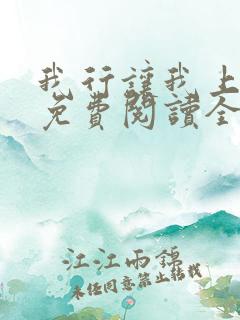 我行讓我上
免費閱讀全
江江雨錦
未經同意禁止轉載